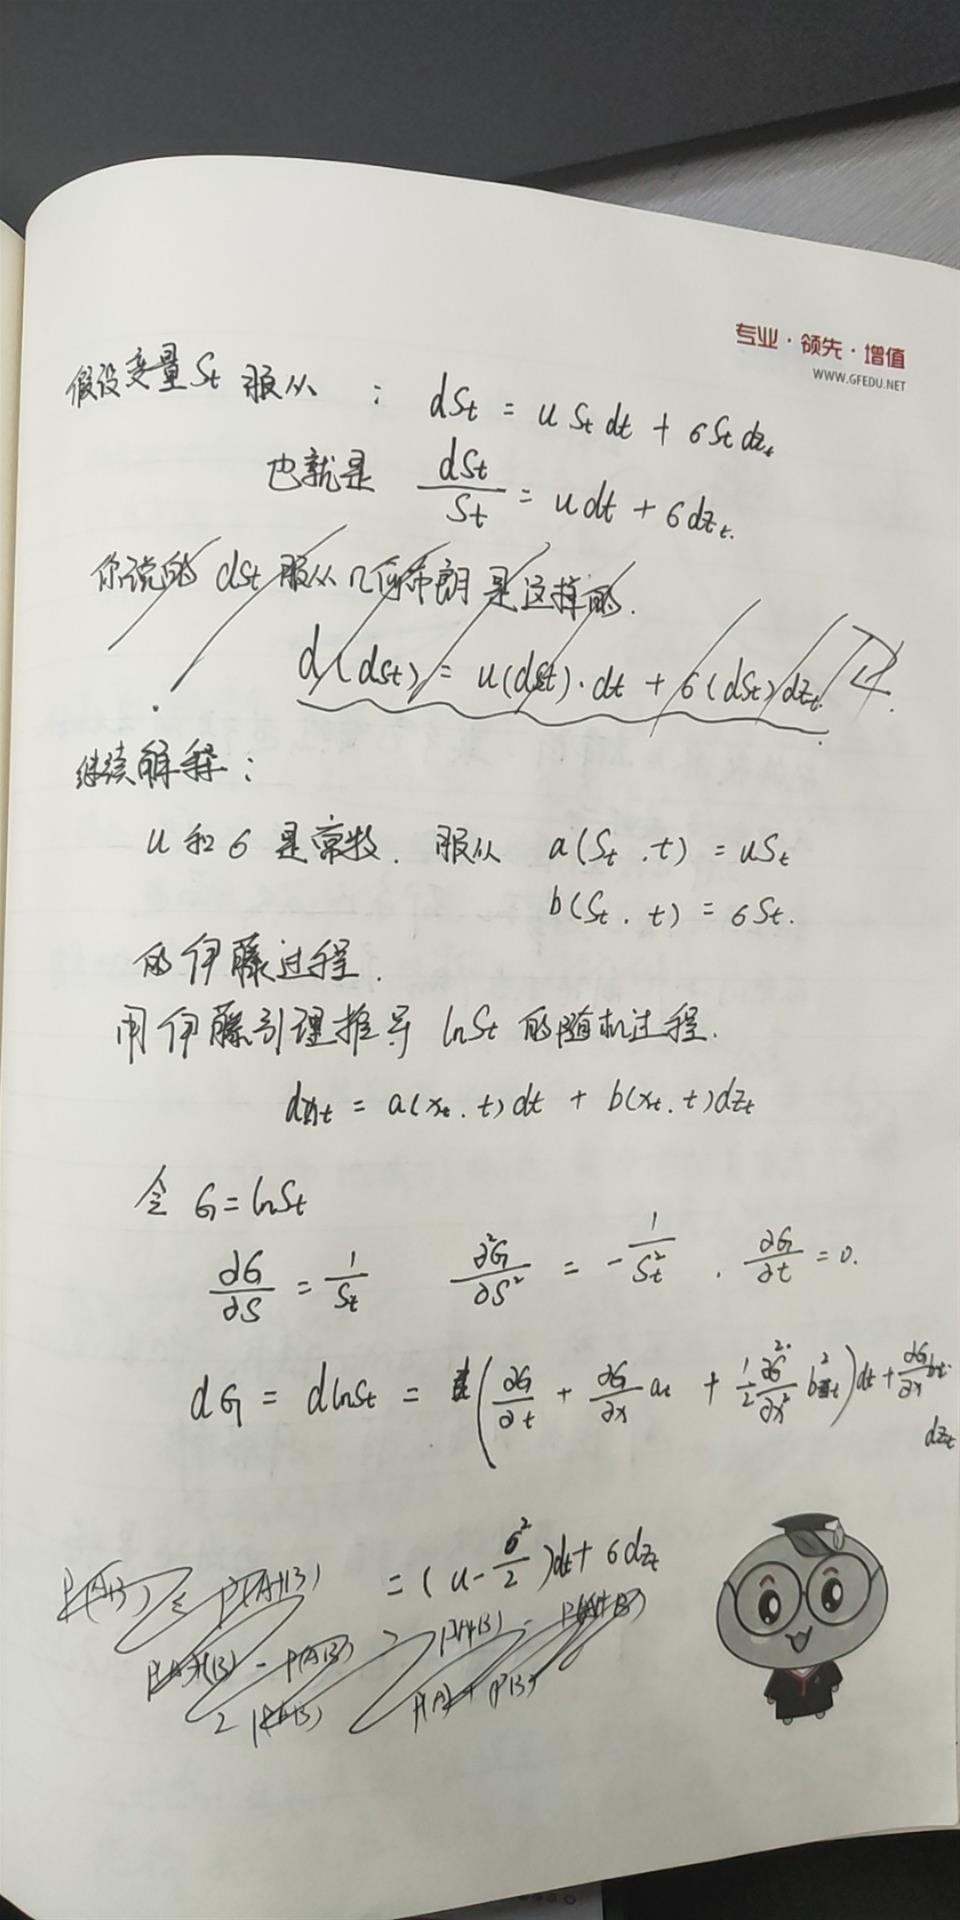 专业·领先·增值
WWW.GFEDU.NET
假设变量St 服从 : dSt = u St dt + 6 St dzt
也就是 dSt/St = u dt + 6 dzt.
你说的 dSt 服从几何布朗是这样的.
d(dSt) = u(dSt)·dt + 6(dSt)dzt.
继续解释:
u 和 6 是常数. 服从 a(St.t) = uSt
b(St.t) = 6St.
的伊藤过程.
用伊藤引理推导 lnSt 的随机过程.
dxt = a(xt.t)dt + b(xt.t)dzt
令 G = lnSt
∂G/∂S = 1/St ∂²G/∂S² = -1/St² . ∂G/∂t = 0.
dG = dlnSt = (∂G/∂t + ∂G/∂x at + 1/2 ∂²G/∂x² b²t)dt + ∂G/∂x bt·
dzt
= (u - 6²/2)dt + 6dzt